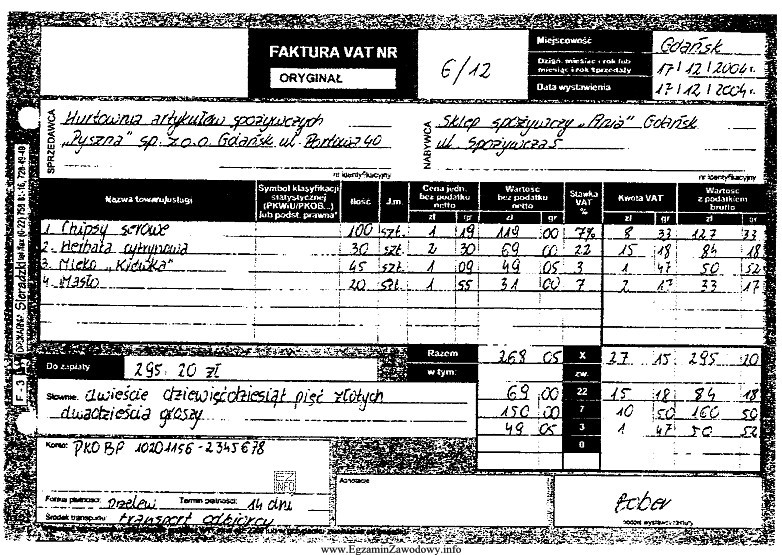 FAKTURA VAT NR 6/12
ORYGINAŁ
Miejscowość Gdańsk
Dzień, miesiąc i rok lub miesiąc i rok sprzedaży 17/12/2004r.
Data wystawienia 17/12/2004r.
SPRZEDAWCA
Hurtownia artykułów spożywczych
„Pyszna” sp. z.o.o. Gdańsk ul. Portowa 40
nr identyfikacyjny
NABYWCA
Sklep spożywczy „Ania” Gdańsk
ul. Spożywcza 5
nr identyfikacyjny
Nazwa towaru/usługi Symbol klasyfikacji statystycznej (PKWiU/PKOB...) lub podst. prawna* Ilość J.m. Cena jedn. bez podatku netto zł gr Wartość bez podatku netto zł gr Stawka VAT % Kwota VAT zł gr Wartość z podatkiem brutto zł gr
1. Chipsy serowe 100 szt. 1 19 119 00 7% 8 33 127 33
2. Herbata cytrynowa 30 szt. 2 30 69 00 22 15 18 84 18
3. Mleko „Krówka” 45 szt. 1 09 49 05 3 1 47 50 52
4. Masło 20 szt. 1 55 31 00 7 2 17 33 17
Razem 268 05 X 27 15 295 20
w tym: zw.
69 00 22 15 18 84 18
150 00 7 10 50 160 50
49 05 3 1 47 50 52
0
Do zapłaty 295.20 zł
Słownie: dwieście dziewięćdziesiąt pięć złotych
dwadzieścia groszy
Konto: PKO BP 10201156-2345678
INFO
Forma płatności: przelew Termin płatności: 14 dni
Środek transportu: transport odbiorcy
Adnotacje
podpis wystawcy faktury
F-3
DRUKARNIA Sieradzki
www.EgzaminZawodowy.info